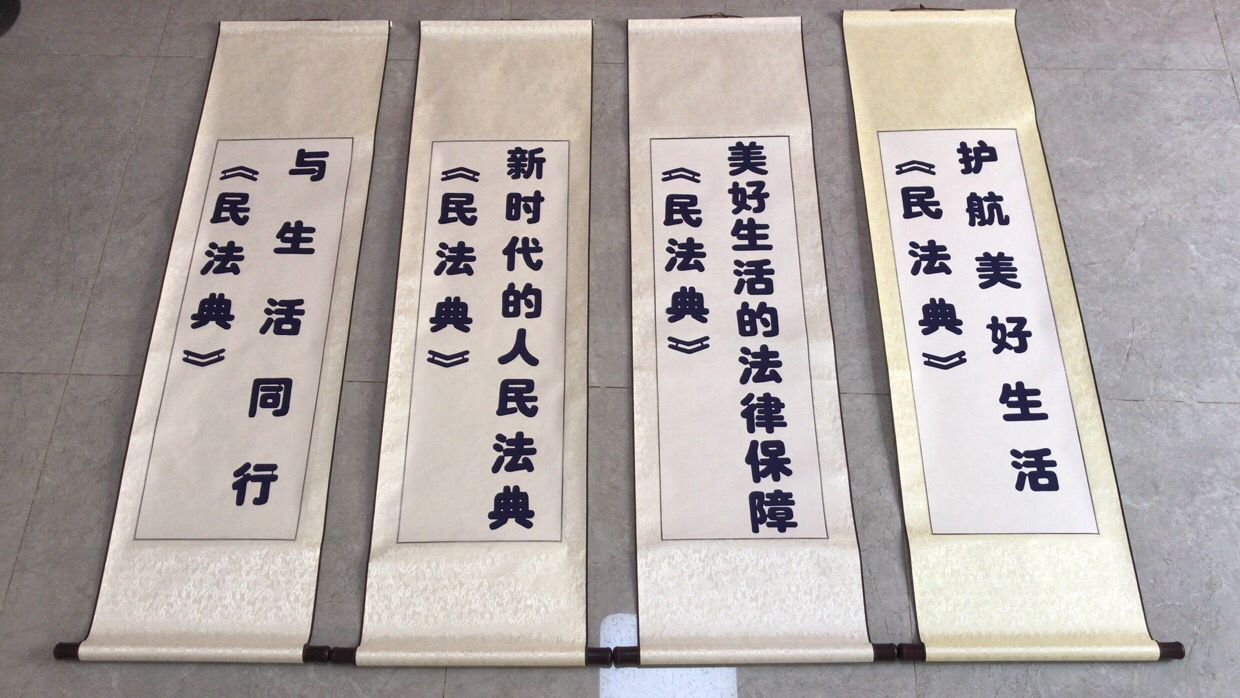 护航美好生活
《民法典》
美好生活的法律保障
《民法典》
新时代的人民法典
《民法典》
与生活同行
《民法典》